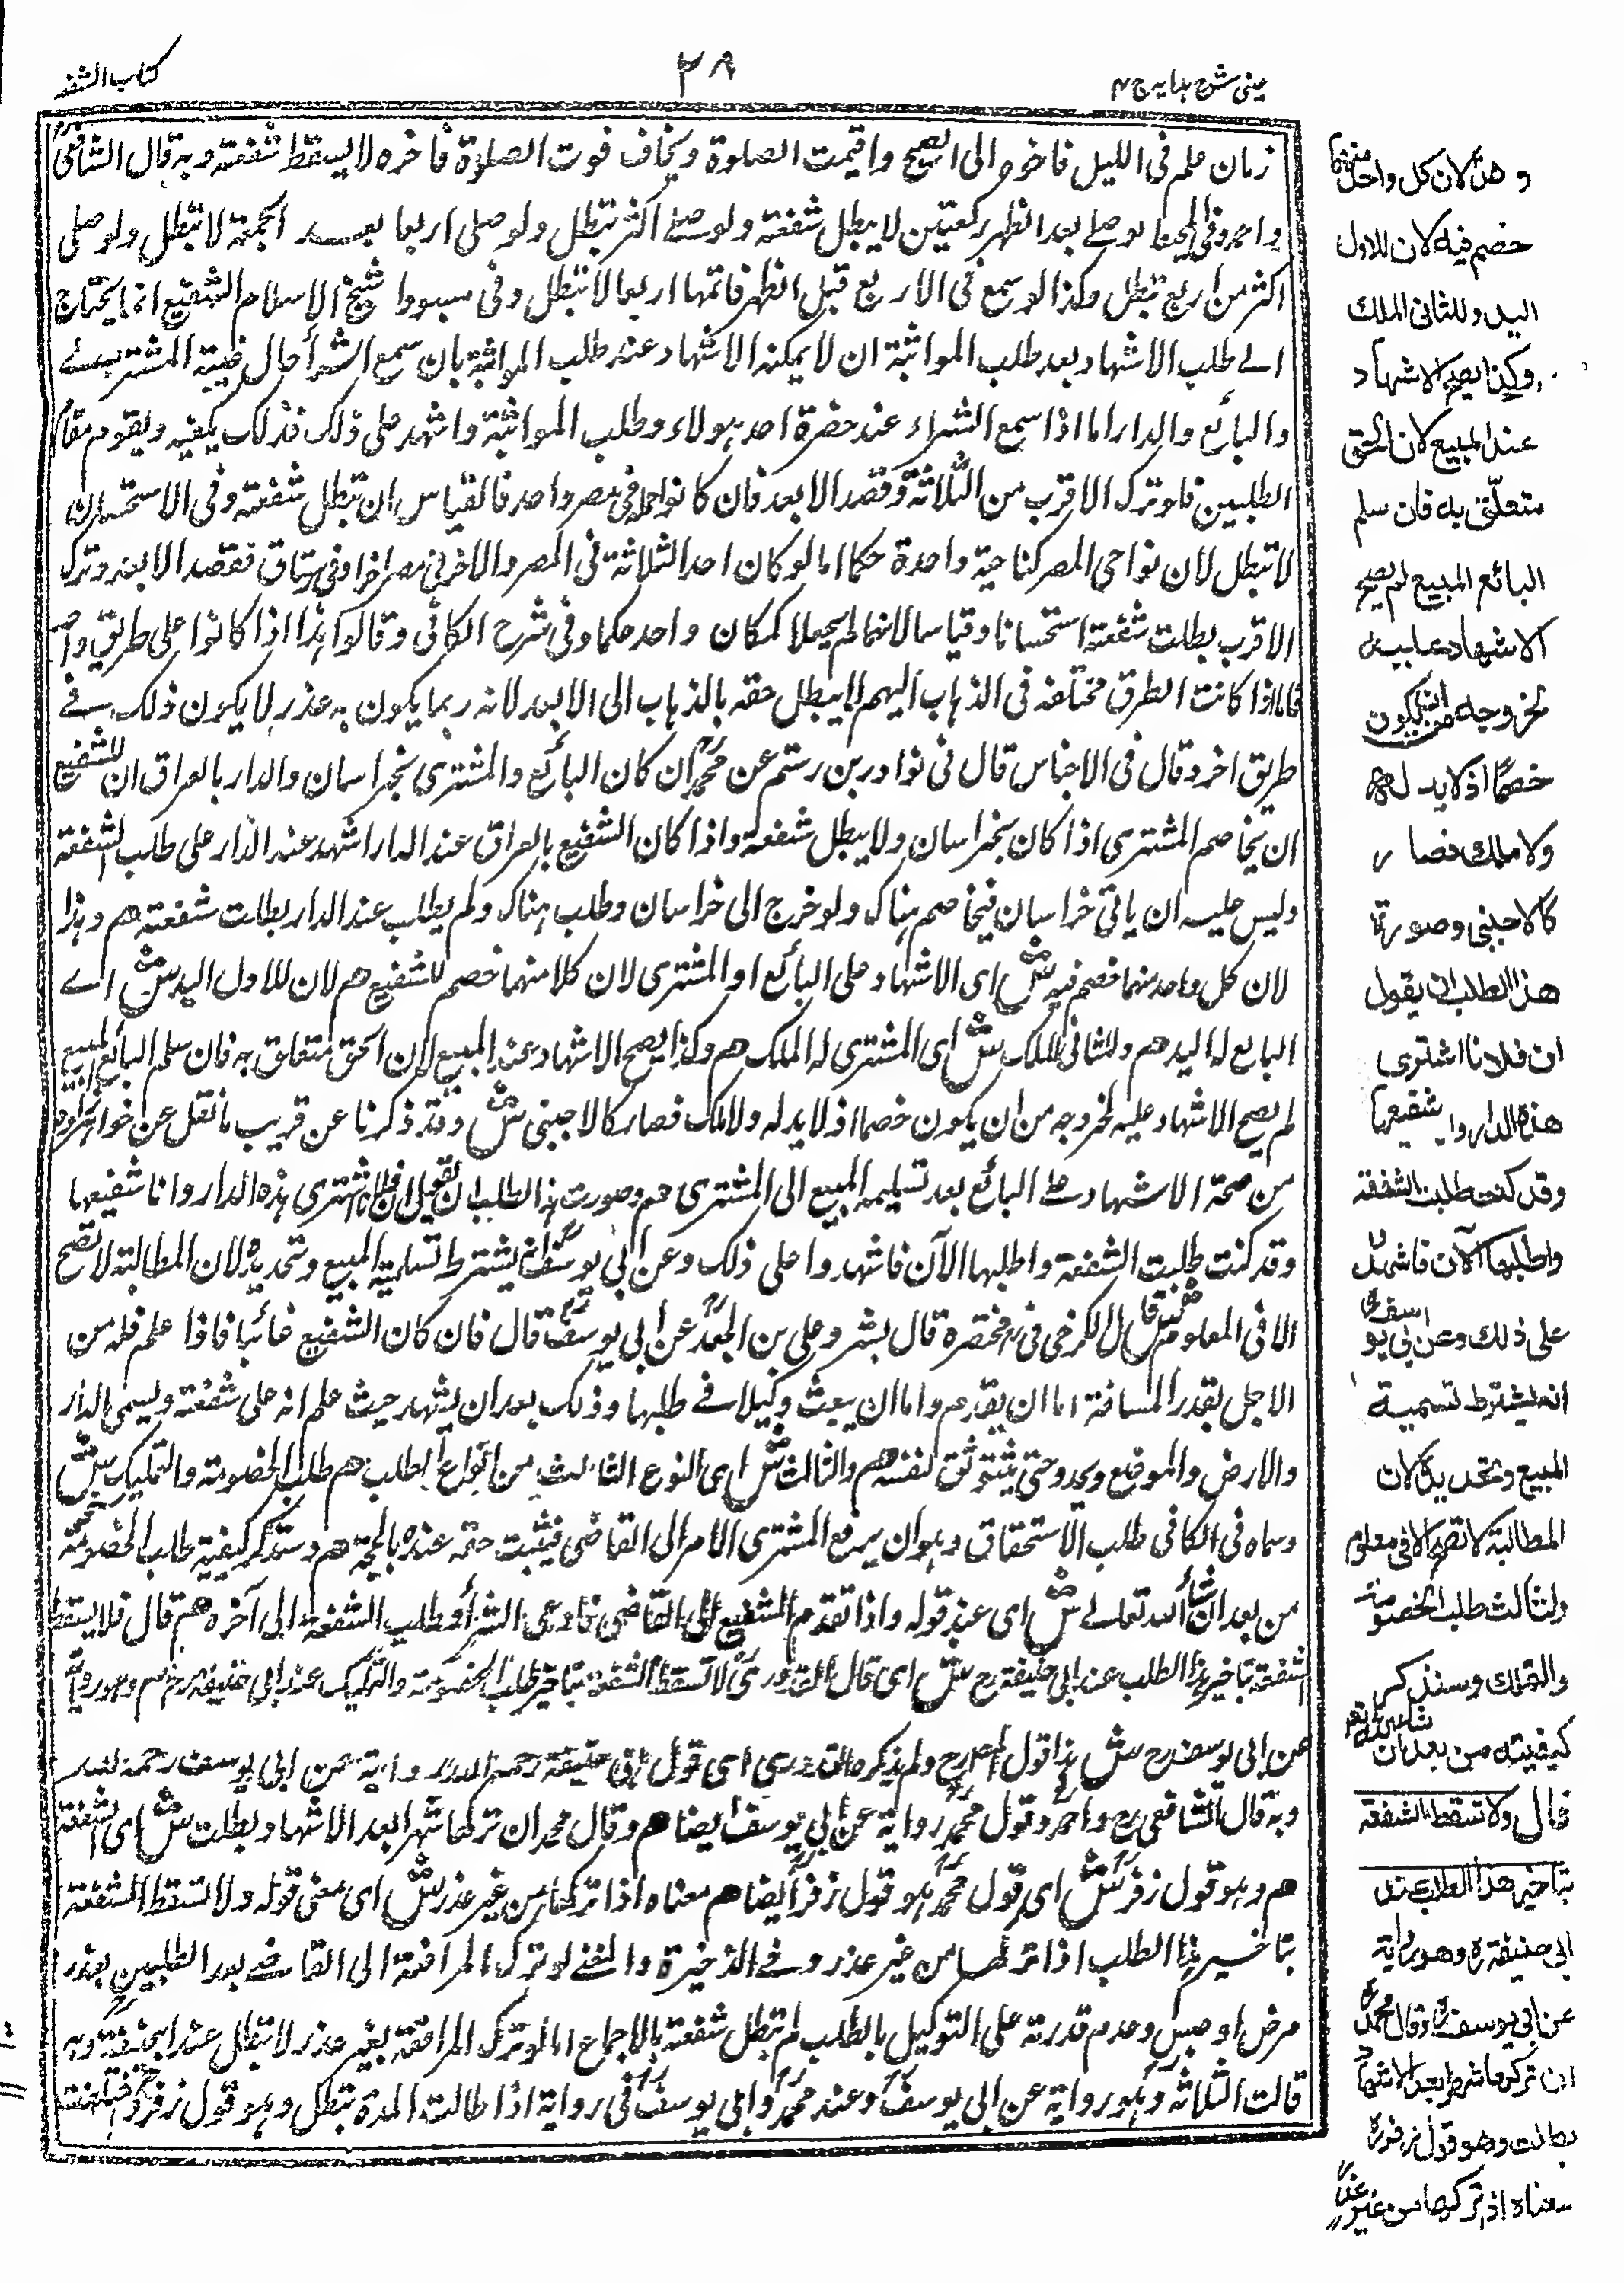 عینی شرح ہدایہ ج ۴
۳۸
کتاب الشفعہ
زمان علم فی اللیل فاخره الی الصبح واقیمت الصلوة ویخاف فوت الصلوة فاخره لا یسقط شفعته وبه قال الشافعی
واحمد وفی المحیط لو صلے بعد الظہر رکعتین لا یبطل شفعته ولو صلے اکثر تبطل ولو صلی اربعا بعد الجمعة لا تبطل ولو صلی
اکثر من اربع تبطل وکذا لو سمع فی الاربع قبل الظہر فاتمها اربعا لا تبطل وفی مبسوط شیخ الاسلام الشفیع انما یحتاج
الے طلب الاشہاد بعد طلب المواثبة ان لا یمکنه الاشہاد عند طلب المواثبة بان سمع الشرا حال غیبة المشترے
والبائع والدار اما اذا سمع الشراء عند حضرة احد ہولاء وطلب المواثبة واشہد علی ذلک فذلک یکفیه ویقوم مقام
الطلبین فلو ترک الاقرب من الثلاثة وقصد الابعد فان کانوا جملة فی مصر واحد فالقیاس ان تبطل شفعته وفی الاستحسان
لا تبطل لان نواحی المصر کناحیة واحدة حکما اما لو کان احد الثلاثة فی المصر والاخر فی مصر اخر او فی رستاق فقصد الابعد وترک
الاقرب بطلت شفعته استحسانا وقیاسا لانهما لم یجعلا کمکان واحد حکما وفی شرح الکافی وقالوا ہذا اذا کانوا علی طریق واحد
فاما اذا کانت الطرق مختلفة فی الذہاب الیهم لا یبطل حقه بالذہاب الی الابعد لانه ربما یکون به عذر لا یکون ذلک فے
طریق اخر وقال فی الاجناس قال فی نوادر بن رستم عن محمد ان کان البائع والمشتری بخراسان والدار بالعراق ان للشفیع
ان یخاصم المشتری اذا کان بخراسان ولا یبطل شفعته واذا کان الشفیع بالعراق عند الدار اشہد عند الدار علی طلب الشفعة
ولیس علیه ان یاتی خراسان فیخاصم ہناک ولو خرج الی خراسان وطلب ہناک ولم یطلب عند الدار بطلت شفعته هم وہذا
لان کل واحد منهما خصم فیه ش ای الاشہاد علی البائع او المشتری لان کلا منهما خصم للشفیع هم لان للاول الید ش اے
البائع له الید هم وللثانی الملک ش ای المشتری له الملک هم وکذا یصح الاشہاد عند المبیع لان الحق متعلق به فان سلم البائع المبیع
لم یصح الاشہاد علیه لخروجه من ان یکون خصما اذ لا ید له ولا ملک فصار کالاجنبی ش وقد ذکرنا عن قریب ما نقل عن خواہرزادہ
من صحة الاشہاد علے البائع بعد تسلیمه المبیع الی المشتری هم وصورة ہذا الطلب ان یقول ان فلانا اشتری ہذه الدار وانا شفیعها
وقد کنت طلبت الشفعة واطلبها الآن فاشہدوا علی ذلک وعن ابی یوسف انه یشترط تسمیة المبیع وتحدیده لان المطالبة لا تصح
الا فی المعلوم ش قال الکرخی فی مختصره قال بشر وعلی بن الجعد عن ابی یوسف قال فان کان الشفیع غائبا فاذا علم فله من
الاجل بقدر المسافة اما ان یقدم واما ان یبعث وکیلا فے طلبها وذلک بعد ان یشہد حیث علم انه علی شفعته ویسمی الدار
والارض والموضع ویحد وحتی یتوثق لنفسه هم والثالث ش ای النوع الثالث من انواع الطلب هم طلب الخصومة والتملیک ش
وسماه فی الکافی طلب الاستحقاق وہو ان یرفع المشتری الامر الی القاضی فیثبت حقه عنده بالحجة هم وسنذکر کیفیة طلب الخصومة
من بعد ان شاء الله تعالے ش ای عند قوله واذا تقدم الشفیع الی القاضی فادعی الشرا وطلب الشفعة الی آخره هم قال فلا یسقط
الشفعة بتاخیر ہذا الطلب عند ابی حنیفة رح ش ای قال القدوری لا تسقط الشفعة بتاخیر طلب الخصومة والتملیک عند ابی حنیفة هم وہو روایة
عن ابی یوسف رح ش ہذا قول المص رح ولم یذکره القدوری ای قول ابی حنیفة رحمه الله روایة عن ابی یوسف رحمه الله
وبه قال الشافعی رح واحمد وقول محمد روایة عن ابی یوسف ایضا هم وقال محمد ان ترکها شهرا بعد الاشہاد بطلت ش ای الشفعة
هم وہو قول زفر ش ای قول محمد ہو قول زفر ایضا هم معناه اذا ترکها من غیر عذر ش ای معنی قوله ولا تسقط الشفعة
بتاخیر ہذا الطلب اذا ترکها من غیر عذر وفے الذخیرة والمغنے لو ترک المرافعة الی القاضے بعد الطلبین بعذر
مرض او حبس وعدم قدرته علی التوکیل بالطلب لم تبطل شفعته بالاجماع اما لو ترک المرافعة بغیر عذر لا تبطل عند ابی حنیفة وبه
قالت الثلاثة وہو روایة عن ابی یوسف وعند محمد وابی یوسف فی روایة اذا طالت المدة تبطل وہو قول زفر
وهذا لان کل واحد منهما
خصم فیه لان للاول
الید وللثانی الملک
وکذا یصح الاشهاد
عند المبیع لان الحق
متعلق به فان سلم
البائع المبیع لم یصح
الاشهاد علیه
لخروجه من ان یکون
خصمًا اذ لا ید له
ولا ملک فصار
کالاجنبی وصورة
هذا الطلب ان یقول
ان فلانا اشتری
هذه الدار وانا شفیعها
وقد کنت طلبت الشفعة
واطلبها الآن فاشهدوا
علی ذلک وعن ابی یوسف
انه یشترط تسمیة
المبیع وتحدیده لان
المطالبة لا تصح الا فی معلوم
والثالث طلب الخصومة
والتملک وسنذکر
کیفیته من بعد ان شاء الله تعالی
قال ولا تسقط الشفعة
بتاخیر هذا الطلب عند
ابی حنیفة وهو روایة
عن ابی یوسف وقال محمد
ان ترکها شهرا بعد الاشهاد
بطلت وهو قول زفر
معناه اذا ترکها من غیر عذر